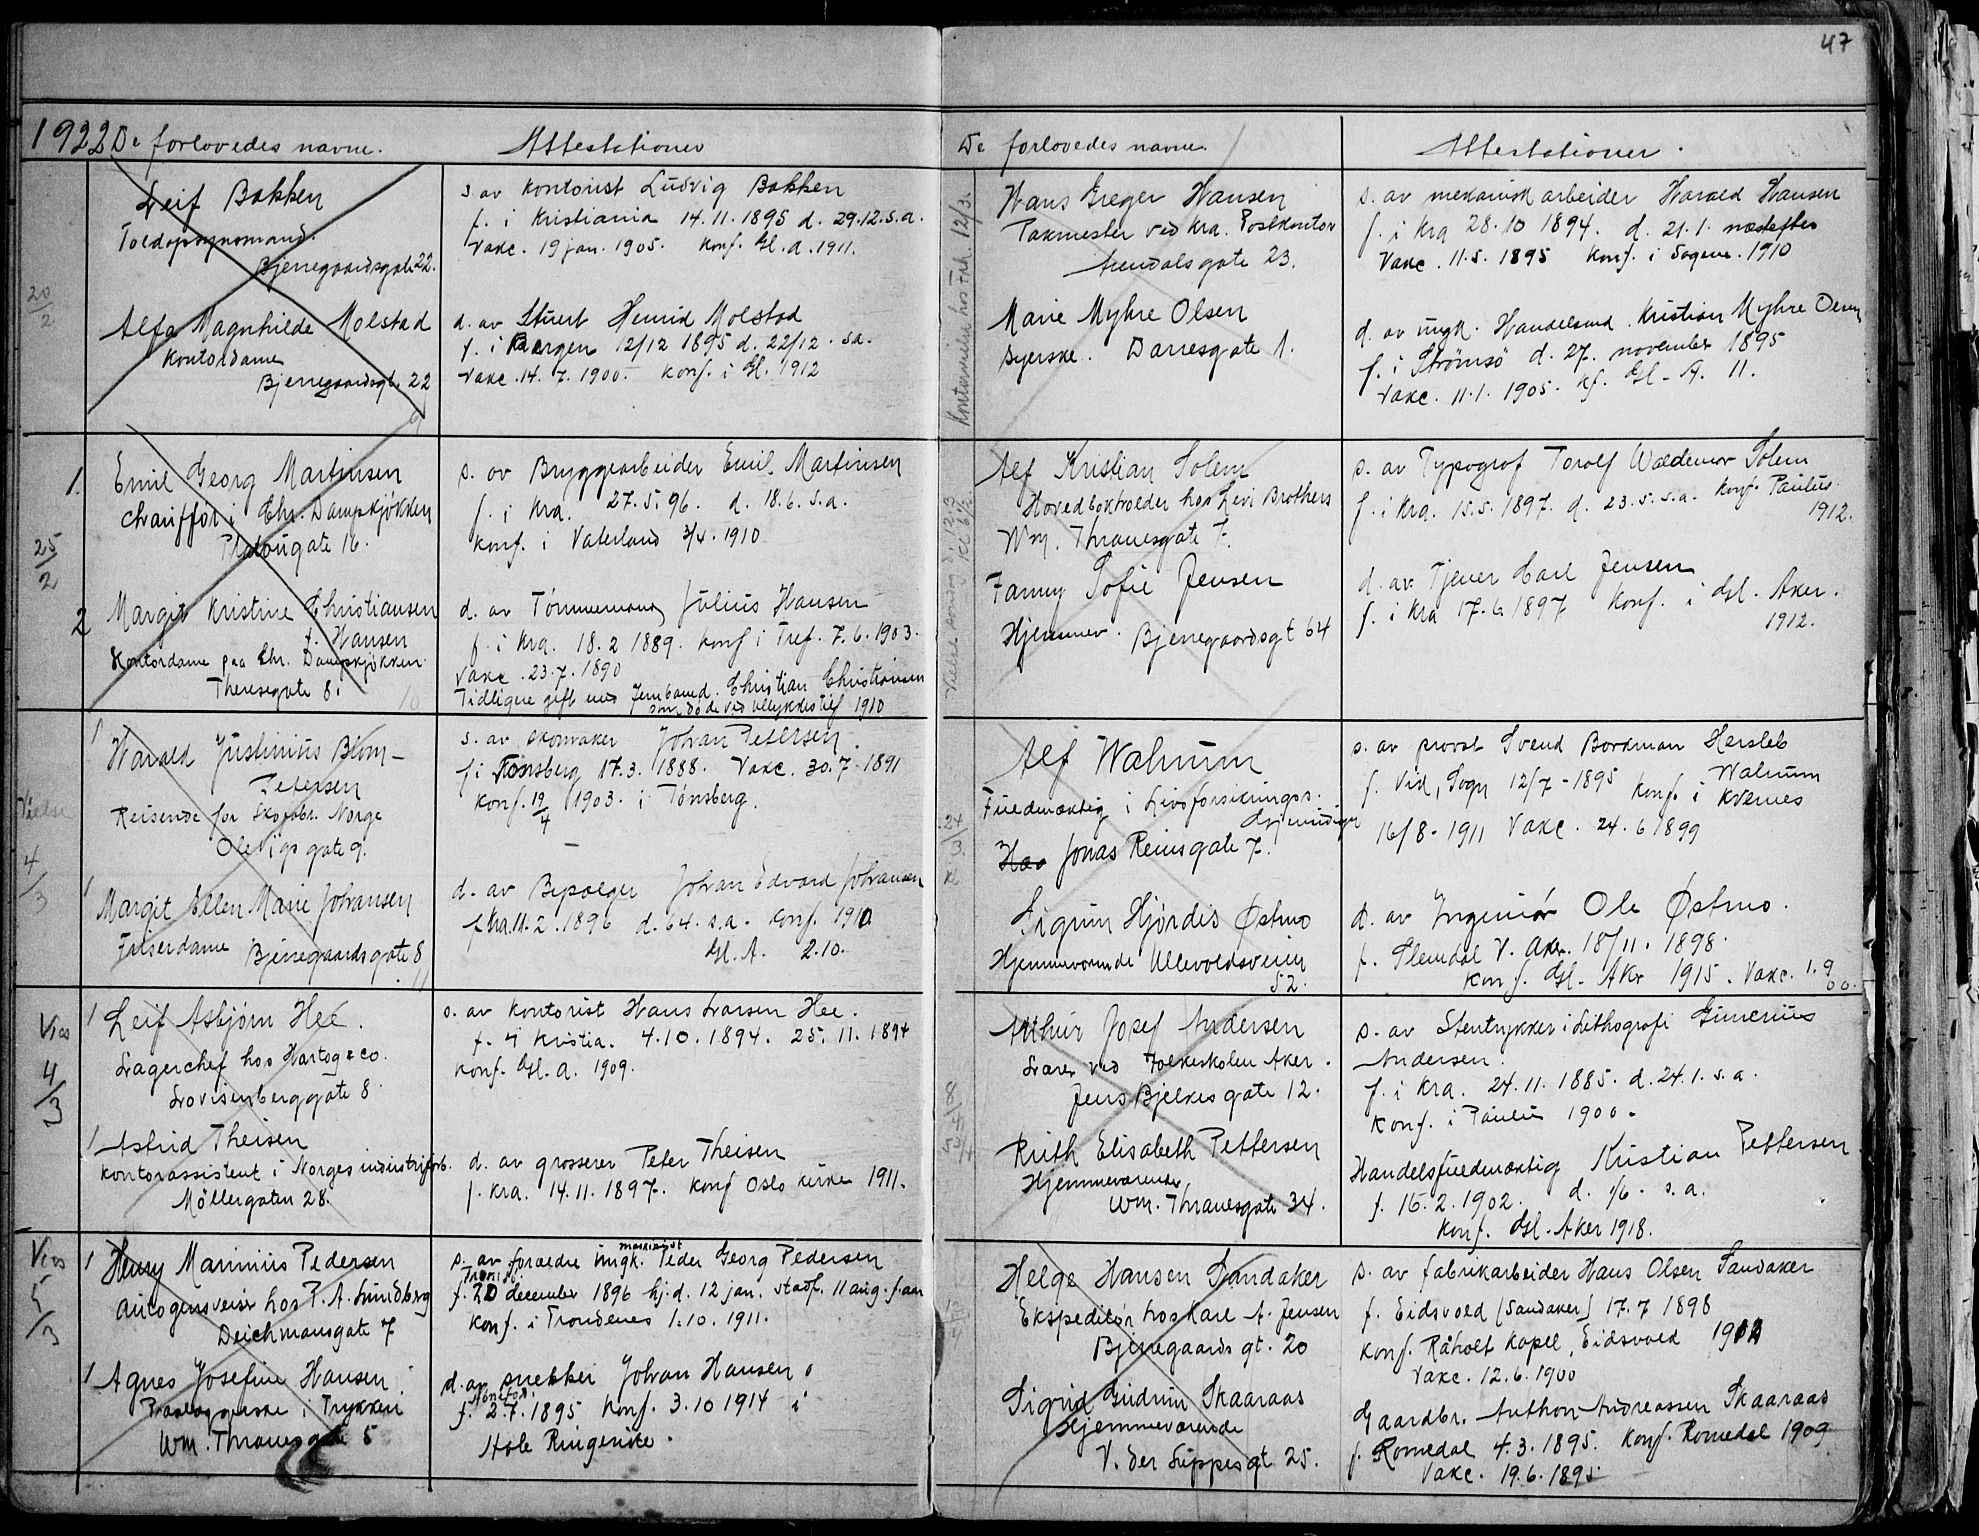 47
1922 De forlovedes navne. Attestationer
Leif Bakken
Toldopsynsmand.
Bjerregaardsgate 22.
s. av kontorist Ludvig Bakken
f. i Kristiania 14.11.1895 d. 29.12.s.a.
Vakc. 19 jan. 1905. konf. Gl. A. 1911.
20/2
Alfa Magnhilde Molstad
Kontordame
Bjerregaardsgt. 22
9
d. av Stuert Henrid Molstad
f. i Bergen 12/12 1895 d. 22/12. sa.
Vakc. 14. 7. 1900. konf. i Gl. 1912
1. Emil Georg Martinsen
Chauffør i Chr. Dampkjøkken
Platougate 16.
s. av Bryggearbeider Emil Martinsen
f. i Kra. 27.5.96. d. 18.6. s.a.
konf. i Vaterland 3/4. 1910
25/2
2 Margit Kristine Christiansen
f. Hansen
Kontordame paa Chr. Dampkjøkken
Theresegate 8.
10
d. av Tømmermand Julius Hansen
f. i Kra. 18.2 1889. konf i Tref. 7.6.1903.
Vakc. 23.7.1890
Tidligere gift med Jernbaned. Christian Christiansen
som døde ved ulykkestilf 1910
1 Harald Justinius Blom-
Petersen
Reisende for Skofabr. Norge
Ole Vigs gate 9.
s. av skomaker Johan Petersen.
f i Tønsberg 17.3. 1888. Vakc. 30.7.1891
konf. 19/4 1903. i Tønsberg.
Vielse
4/3
1 Margit Ellen Marie Johansen
Friserdame Bjerregaardsgate 8
11
d. av Bypaeger Johan Edvard Johansen
f. Kra. 11.2.1896 d. 6 4. s.a. konf. 1910
Gl. A. 2.10.
Vies
4/3
1 Leif Asbjørn Hee.
Lagerchef hos Hartog & Co.
Lovisenberggate 8
s. av kontorist Hans Larsen Hee.
f. i Kristia. 4.10.1894. 25. 11. 1894
konf. Gl. A. 1909.
1 Astrid Theisen
kontorassistent i Norges industriforb.
Møllergaten 28.
d. av grosserer Peter Theisen
f. Kra. 14.11.1897. konf Oslo kirke 1911.
Vies
5/3
1 Henry Marinius Pedersen
Autogensveiser hos P. A. Lundberg
Deichmansgate 7
s. av foraeldre ungk. maskinist Peder Georg Pedersen
f. 20 december 1896 hj.d. 12 jan. stadf. 11 aug. f. aar
konf. i Trondenes 1.10. 1911.
1 Agnes Josefine Hansen
i Trykkeri
Wm. Thranesgate 5
d. av snekker Johan Hansen
f. 2.7.1895 konf. 3.10 1914 i
Hole Ringerike.
De forlovedes navne. Attestationer.
Hans Greger Hansen
Takmester ved Kra. Postkontor
Arendalsgate 23.
s. av mekanisk arbeider Harald Hansen
f. i Kra 28.10 1894. d. 21.1. næstefter
Vakc. 11.5. 1895 konf. i Sagene. 1910
12/3.
Marie Myhre Olsen
Syerske. Darresgate 1.
d. av ungk. Handelsmd. Kristian Myhre Olsen
f. i Strømsø d. 27. november 1895
Vakc. 11.1. 1905. kf. Gl. A. 11.
Alf Kristian Solem
Hovedbokholder hos Levi Brothers
Wm. Thranesgate 7.
s. av Typograf Torolf Waldemar Solem
f. i Kra. 15.5.1897. d. 23.5. s.a. konf. Paulus.
1912.
12.3
kl 6½
Fanny Sofie Jensen
Hjemmev. Bjerregaardsgt 64
d. av Tjener Carl Jensen
f. i Kra 17.6.1897 konf. i Gl. Aker.
1912.
Alf Walnum
Fuldmæktig i Livsforsikringss.
Gjensidige
Jonas Reinsgate 7.
s. av provst Svend Bordman Hersleb
Walnum
f. Vid, Sogn 12/7 - 1895 konf. i Kvernes
16/8 - 1911 Vakc. 24.6 1899
Sigrun Hjørdis Østmo
Hjemmeværende Ullevoldsveien
52.
d. av Ingeniør Ole Østmo.
f. Slemdal V. Aker. 18/11. 1898.
Konf. Gl. Aker 1915. Vakc. 1.9
00.
Arthur Josef Andersen
Lærer ved Folkeskolen Aker.
Jens Bjelkes gate 12.
s. av Stentrykker i Lithografi Gunerius
Andersen.
f. i Kra. 24.11. 1885. d. 24.1. s.a.
konf. i Paulus 1900.
Ruth Elisabeth Pettersen
Hjemmeværende
Wm. Thranesgate 34.
Handelsfuldmæktig Kristian Pettersen
f. 16.2.1902. d. 1/6. s.a.
konf. Gl. Aker 1918.
Helge Hansen Sandaker
Ekspeditør hos Karl A. Jensen
Bjerregaards gt. 20
s. av fabrikarbeider Hans Olsen Sandaker
f. Eidsvold (Sandaker) 17.7 1898
konf. Råholt kapel, Eidsvold
Vakc. 12.6.1900
Sigrid Gudrun Skaaraas
Hjemmeværende
V. der Lippesgt 25.
Gaardbr. Anthon Andreassen Skaaraas
f. Romedal 4.3.1895. konf. Romedal 1909
Vakc. 19.6.1895